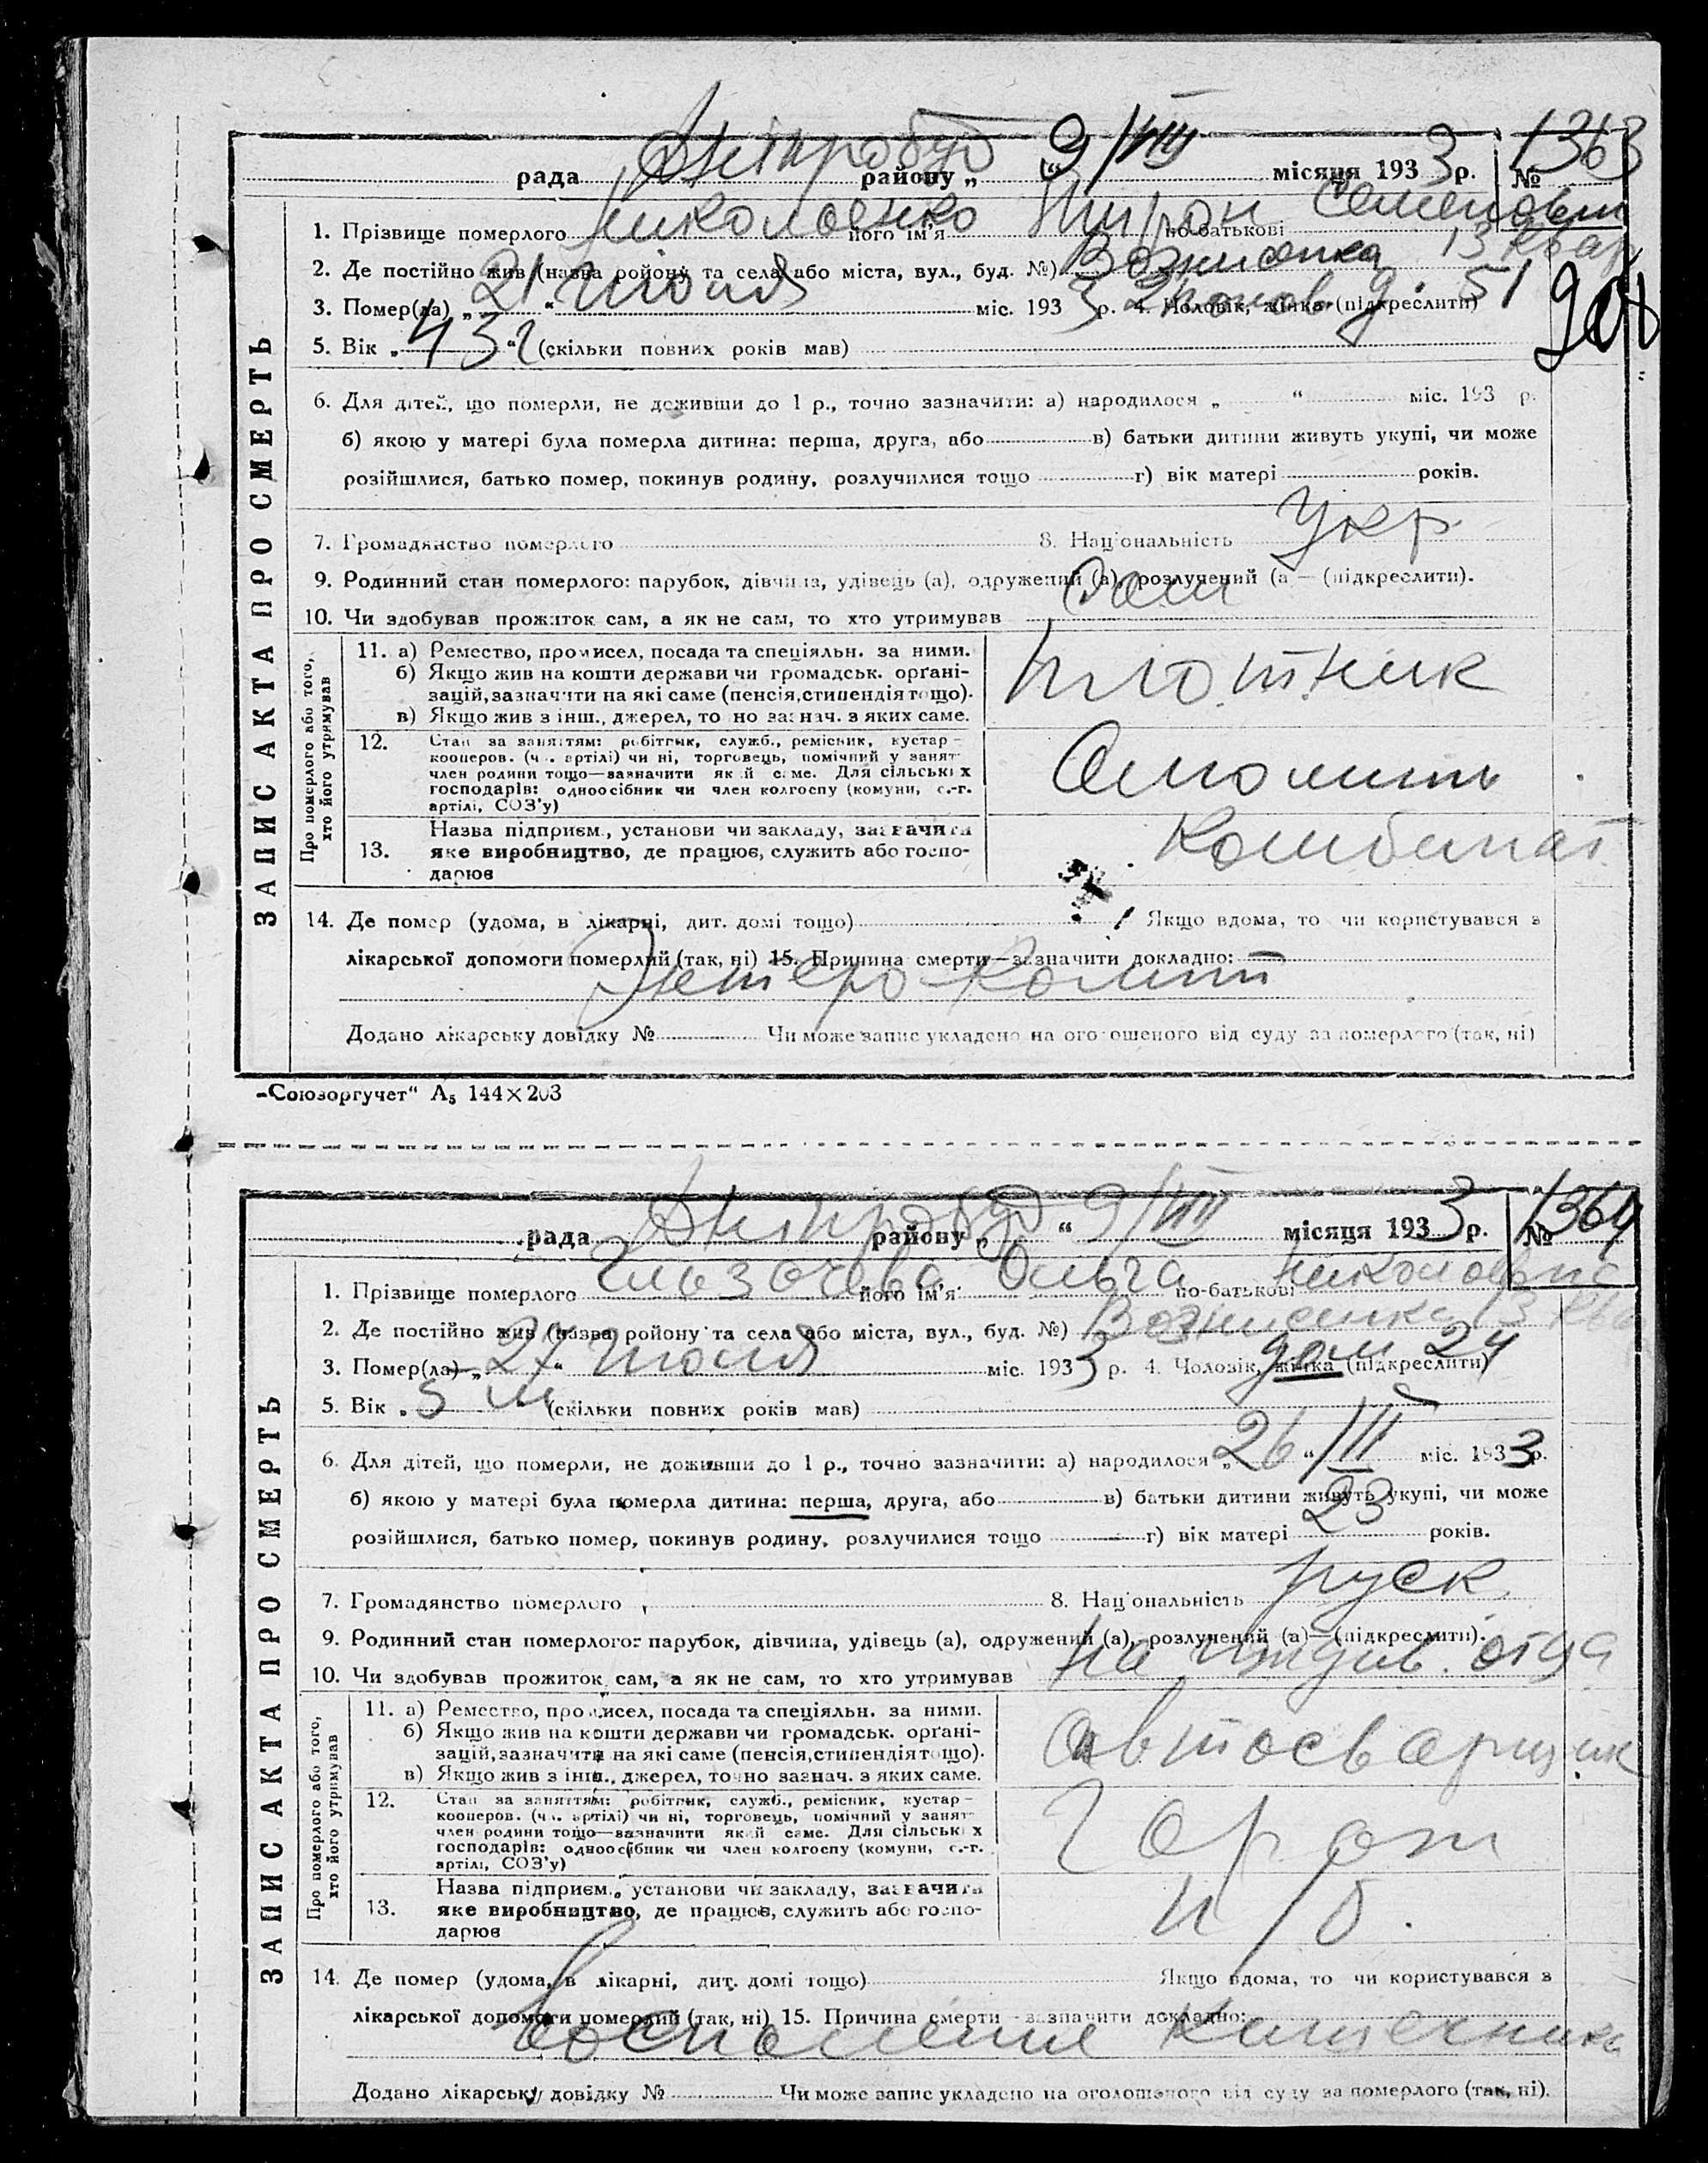 рада Дніпробуд району „ 9/VIII “ місяця 1933 р. № 1363
1. Прізвище померлого Николаенко його ім'я по-батькові Семенович
2. Де постійно жив (назва ройону та села або міста, вул., буд. №) Вознисенка 13 квар
3. Помер(ла) „ 21 “ Июля міс. 1933 р. 4. Чоловік, жінка (підкреслити) 51
5. Вік „ 43 г “ (скільки повних років мав)
6. Для дітей, що померли, не доживши до 1 р., точно зазначити: а) народилося „ “ міс. 193 р.
б) якою у матері була померла дитина: перша, друга, або в) батьки дитини живуть укупі, чи може
розійшлися, батько помер, покинув родину, розлучилися тощо г) вік матері років.
7. Громадянство померлого 8. Національність Укр
9. Родинний стан померлого: парубок, дівчина, удівець (а), одружений (а), розлучений (а — (підкреслити).
10. Чи здобував прожиток сам, а як не сам, то хто утримував Сам
ЗАПИС АКТА ПРО СМЕРТЬ
Про померлого або того, хто його утримував
11. а) Ремество, промисел, посада та спеціяльн. за ними.
б) Якщо жив на кошти держави чи громадськ. орґані-
зацій, зазначити на які саме (пенсія, стипендія тощо).
в) Якщо жив з інш., джерел, точно зазнач. з яких саме.
плотник
12. Стан за заняттям: робітник, служб., ремісник, кустар —
кооперов. (чл. артілі) чи ні, торговець, помічний у занят
член родини тощо—зазначити який саме. Для сільських
господарів: одноосібник чи член колгоспу (комуни, с.-г.
артілі, СОЗ'у)
13. Назва підприєм., установи чи закладу, зазначити
яке виробництво, де працює, служить або госпо-
дарює
Комбинат
14. Де помер (удома, в лікарні, дит. домі тощо) Якщо вдома, то чи користувався з
лікарської допомоги померлий (так, ні) 15. Причина смерти—зазначити докладно:
Энтеро-колит
Додано лікарську довідку № Чи може запис укладено на оголошеного від суду за померлого (так, ні)
„Союзоргучет“ А₅ 144×203
рада Дніпробуд району „ 9/VIII “ місяця 1933 р. № 1364
1. Прізвище померлого його ім'я Ольга по-батькові Николаевна
2. Де постійно жив (назва ройону та села або міста, вул., буд. №) Вознисенка 13 ква
3. Помер(ла) „ 27 “ Июля міс. 1933 р. 4. Чоловік, жінка (підкреслити) дом 24
5. Вік „ 5 м (скільки повних років мав)
6. Для дітей, що померли, не доживши до 1 р., точно зазначити: а) народилося „ 26 “ /II міс. 1933 р.
б) якою у матері була померла дитина: перша, друга, або в) батьки дитини живуть укупі, чи може
розійшлися, батько помер, покинув родину, розлучилися тощо г) вік матері 23 років.
7. Громадянство померлого 8. Національність руск
9. Родинний стан померлого: парубок, дівчина, удівець (а), одружений (а), розлучений (а)—(підкреслити).
10. Чи здобував прожиток сам, а як не сам, то хто утримував на иждив. отца
ЗАПИС АКТА ПРО СМЕРТЬ
Про померлого або того, хто його утримував
11. а) Ремество, промисел, посада та спеціяльн. за ними.
б) Якщо жив на кошти держави чи громадськ. орґані-
зацій, зазначити на які саме (пенсія, стипендія тощо).
в) Якщо жив з інш., джерел, точно зазнач. з яких саме.
автосварщик
12. Стан за заняттям: робітник, служб., ремісник, кустар —
кооперов. (чл. артілі) чи ні, торговець, помічний у занят
член родини тощо—зазначити який саме. Для сільських
господарів: одноосібник чи член колгоспу (комуни, с.-г.
артілі, СОЗ'у)
13. Назва підприєм., установи чи закладу, зазначити
яке виробництво, де працює, служить або госпо-
дарює
14. Де помер (удома, в лікарні, дит. домі тощо) Якщо вдома, то чи користувався з
лікарської допомоги померлий (так, ні) 15. Причина смерти—зазначити докладно:
Воспаление Кишечника
Додано лікарську довідку № Чи може запис укладено на оголошеного від суду за померлого (так, ні).